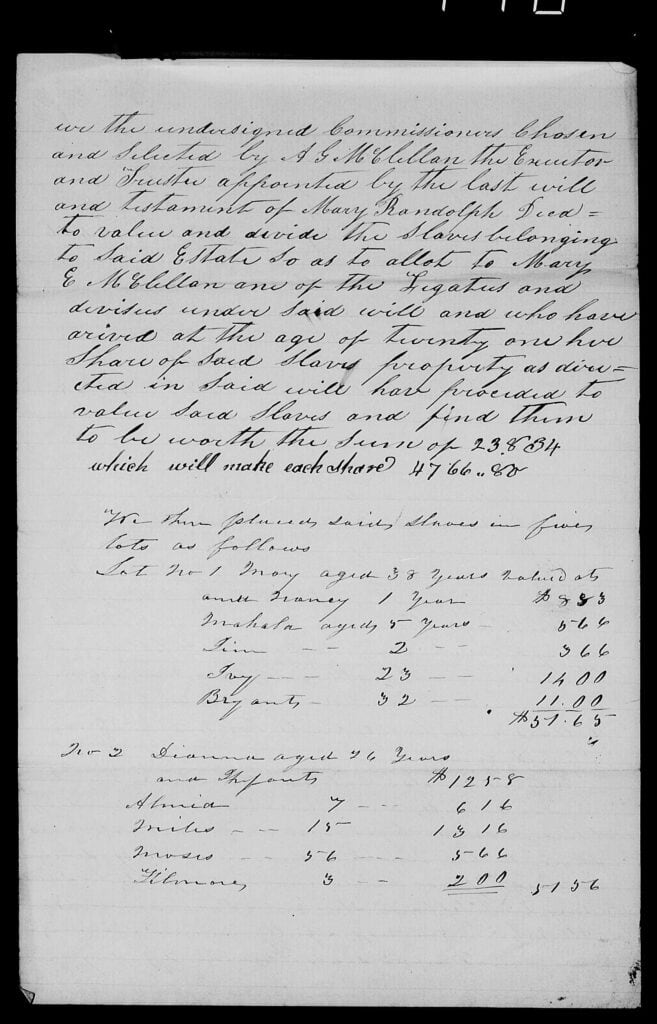 we the undersigned Commissioners Chosen
and Selected by A G McClellan the Executor
and Trustee appointed by the last will
and testament of Mary Randolph Decd=
to value and divide the Slaves belonging
to Said Estate So as to allot to Mary
E McClellan one of the Legatus and
devisus under Said will and who have
arived at the age of twenty one her
Share of Said Slaves property as dire=
cted in Said will have proceded to
value Said Slaves and find them
to be worth the Sum of 23.834
which will make each share 4766..80
We then placed said slaves in five
lots as follows
Lot No 1 Mary aged 38 Years valued at
and Nancy 1 Year $833
Mahala aged 5 Years - 566
Tim - - 2 - - 366
Ivy - - - 23 - - 1400
Bryant - 32 - - 11.00
$51.65
No 2 Dianna aged 26 Years
and Infant $1258
7 - - 616
Miles - - 15 1316
Moses - - 56 - - - 566
Filmore 3 - - 200 5156